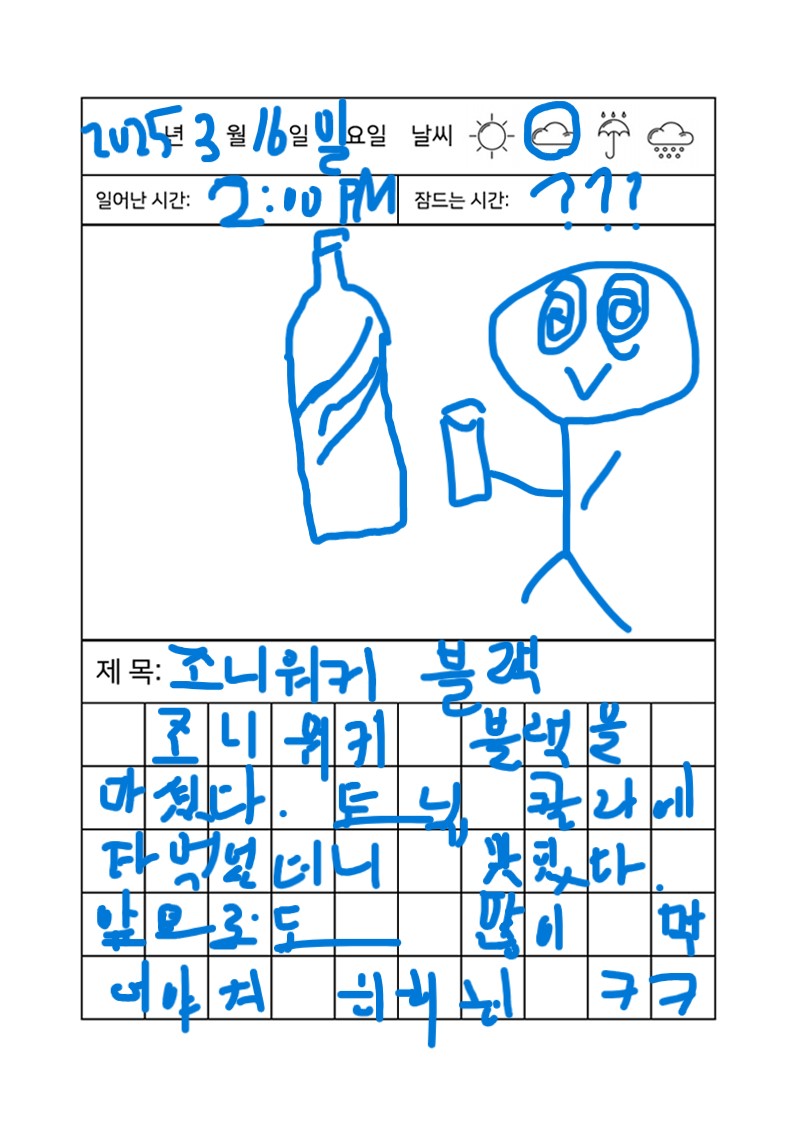 2025년 3월 16일 일요일 날씨
일어난 시간: 2:00 PM 잠드는 시간: ???
제 목: 조니워키 블랙
조니워키 블랙을
마셨다. 토닉 콜라에
타먹었더니 맛있다.
앞으로도 많이 먹
어야지 히히 ㅋㅋ